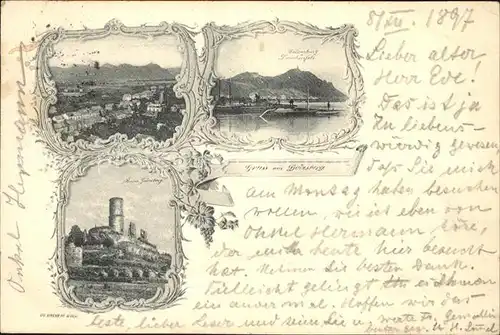 8/XII. 1897
Lieber alter
Herr Eve!
Das ist ja
zu liebens-
würdig gewesen
dass Sie mich
am Montag haben besuchen
wollen, wie ich eben von
Onkel Hermann höre,
der mich heute hier besucht
hat. Nehmen Sie besten Dank.
Vielleicht gelingt es Ihnen
ein ander mal. Hoffen wir das
beste, lieber Leser und seien Sie
Onkel Hermann
Gruss aus Godesberg
Ruine Godesberg